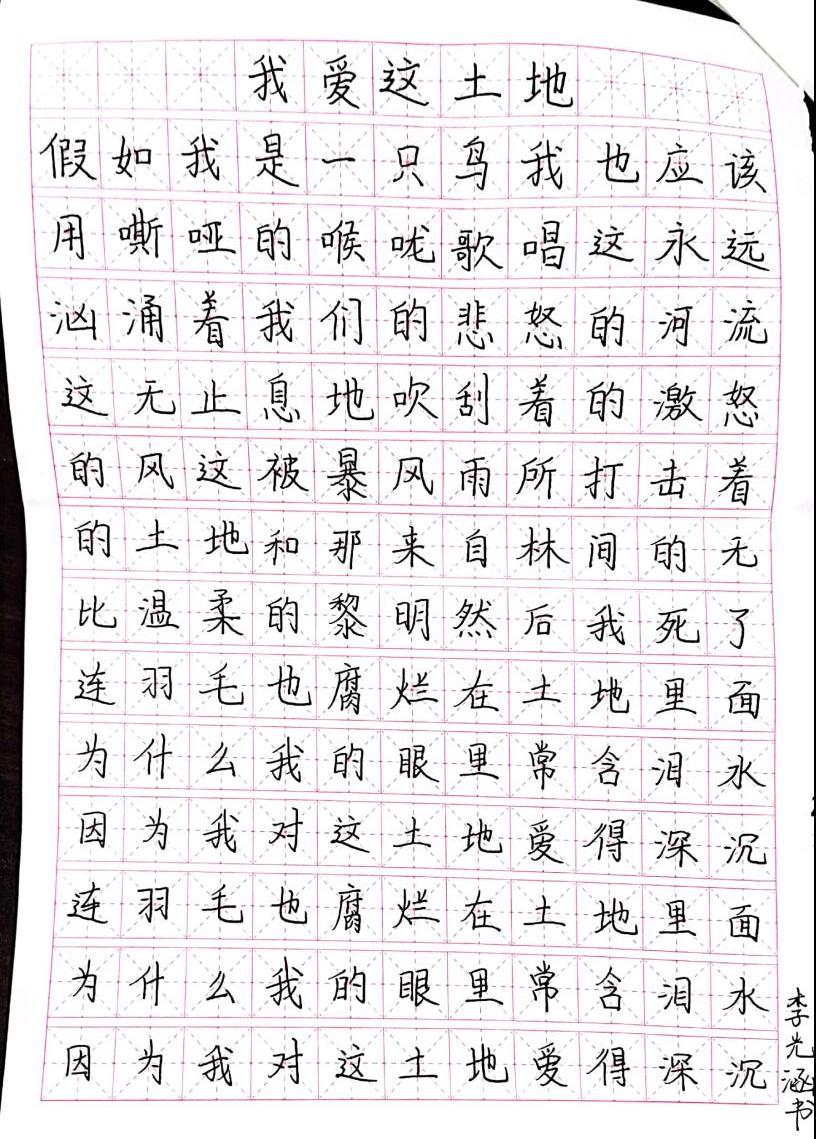 我爱这土地
假如我是一只鸟我也应该
用嘶哑的喉咙歌唱这永远
汹涌着我们的悲怒的河流
这无止息地吹刮着的激怒
的风这被暴风雨所打击着
的土地和那来自林间的无
比温柔的黎明然后我死了
连羽毛也腐烂在土地里面
为什么我的眼里常含泪水
因为我对这土地爱得深沉
连羽毛也腐烂在土地里面
为什么我的眼里常含泪水
因为我对这土地爱得深沉
李光涵书